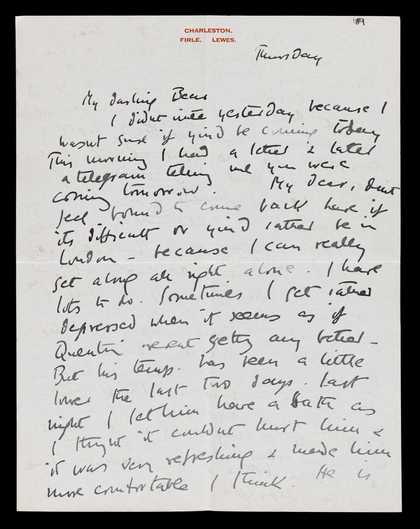 CHARLESTON,
FIRLE, LEWES.
Thursday
My darling Bear
I didnt write yesterday because I
wasnt sure if you'd be coming today
This morning I had a letter & later
a telegram telling me you were
coming tomorrow. My dear, dont
feel bound to come back here if
its difficult or you'd rather be in
London – because I can really
get along all right alone. I have
lots to do. Sometimes I get rather
depressed when it seems as if
Quentin wasnt getting any better –
But his temp. has been a little
lower the last two days. Last
night I let him have a bath as
I thought it couldnt hurt him &
it was very refreshing & made him
more comfortable I think. He is